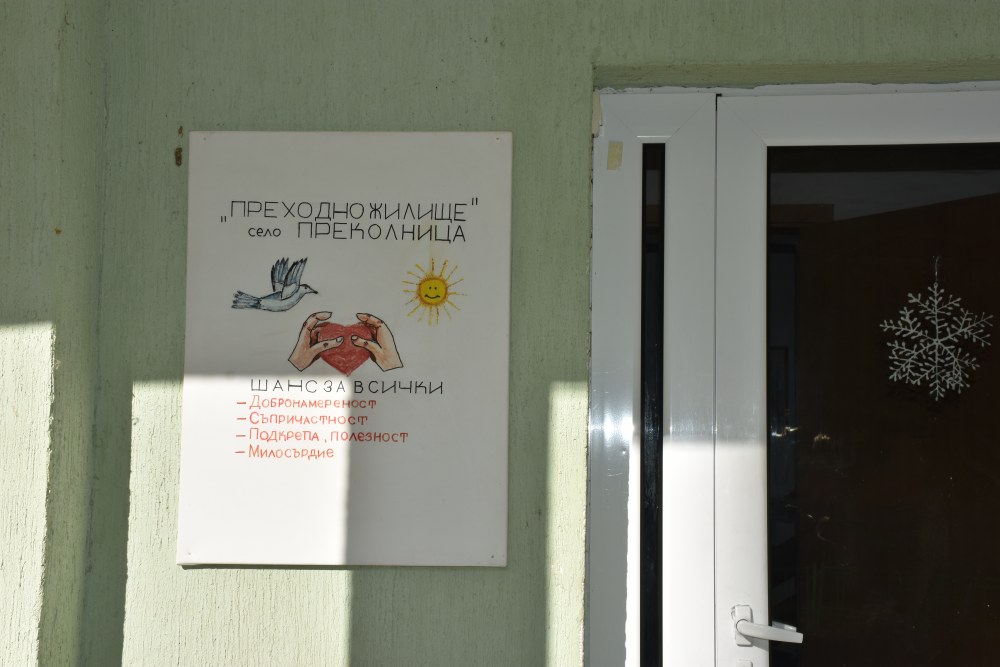 "ПРЕХОДНО ЖИЛИЩЕ"
село ПРЕКОЛНИЦА
ШАНС ЗА ВСИЧКИ
- ДОБРОНАМЕРЕНОСТ
- СЪПРИЧАСТНОСТ
- ПОДКРЕПА, ПОЛЕЗНОСТ
- МИЛОСЪРДИЕ